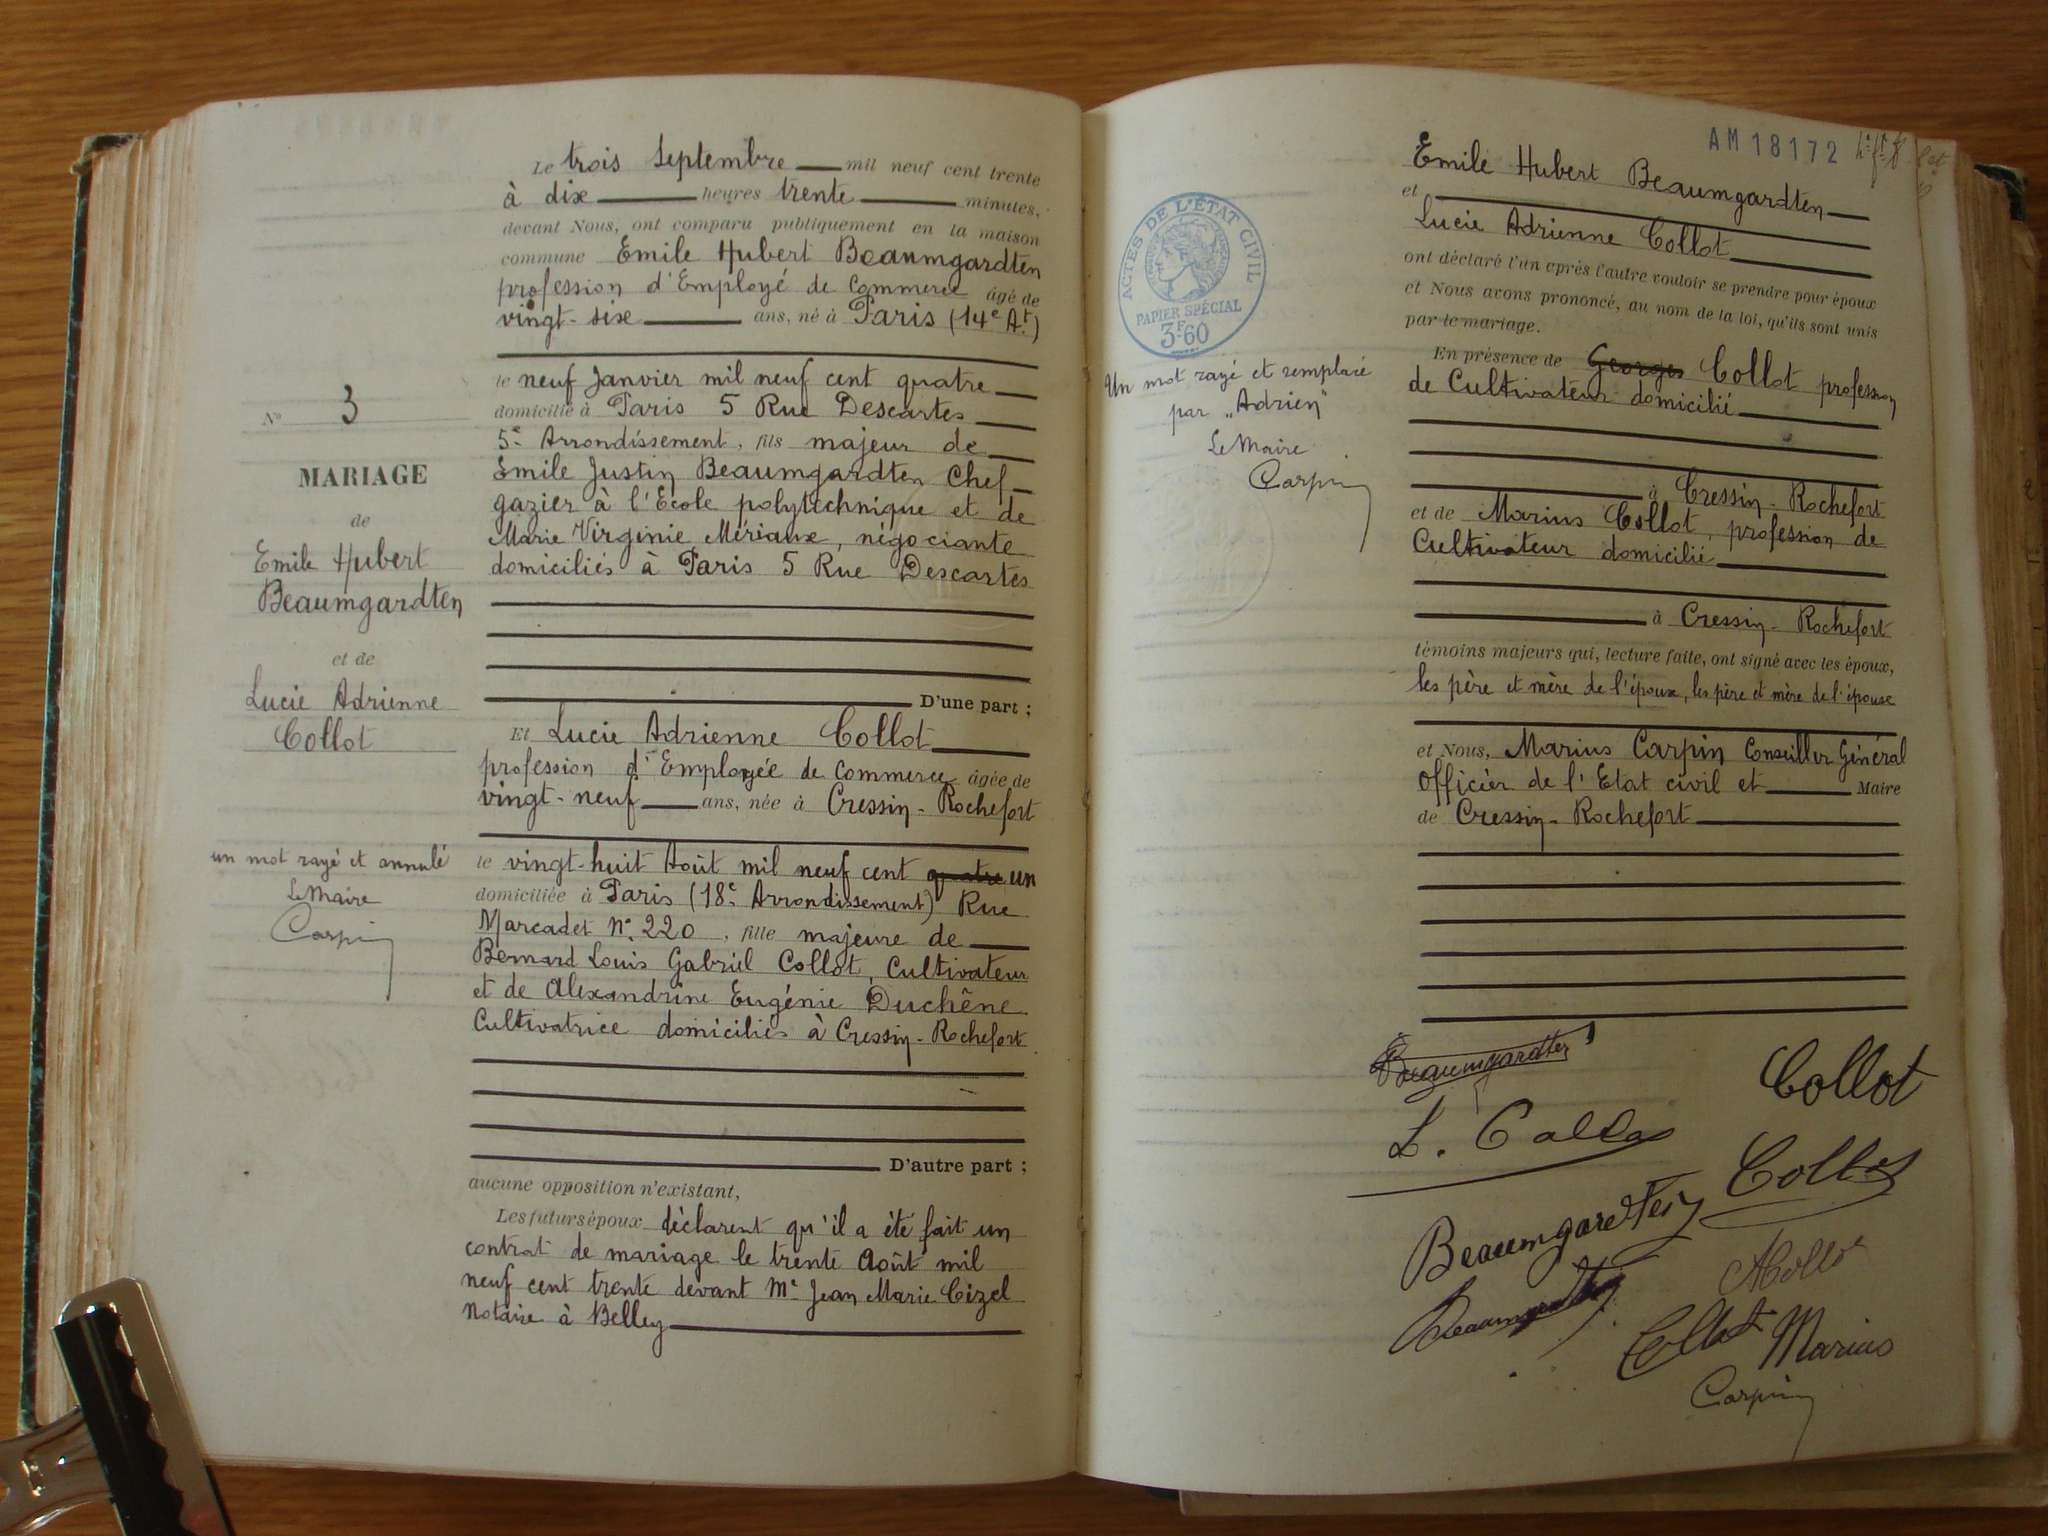 Le trois Septembre mil neuf cent trente
à dix heures trente minutes,
devant Nous, ont comparu publiquement en la maison
commune Emile Hubert Beaumgardten
profession d'Employé de Commerce âgé de
vingt-six ans, né à Paris (14e At.)
le neuf Janvier mil neuf cent quatre
domicilié à Paris 5 Rue Descartes
5e Arrondissement, fils majeur de
Emile Justin Beaumgardten Chef
gazier à l'Ecole polytechnique et de
Marie Virginie Mériaux, négociante
domiciliés à Paris 5 Rue Descartes
D'une part ;
Et Lucie Adrienne Collot
profession d'Employée de Commerce âgée de
vingt-neuf ans, née à Cressin-Rochefort
le vingt-huit Août mil neuf cent quatre un
domiciliée à Paris (18e Arrondissement) Rue
Marcadet N° 220, fille majeure de
Bernard Louis Gabriel Collot, Cultivateur
et de Alexandrine Eugénie Duchêne
Cultivatrice domiciliés à Cressin-Rochefort
D'autre part ;
aucune opposition n'existant,
Les futurs époux déclarent qu'il a été fait un
contrat de mariage le trente Août mil
neuf cent trente devant Me Jean Marie Cizel
Notaire à Belley
N° 3
MARIAGE
de
Emile Hubert
Beaumgardten
et de
Lucie Adrienne
Collot
un mot rayé et annulé
Le Maire
Carpin
AM 18172
Emile Hubert Beaumgardten
et
Lucie Adrienne Collot
ont déclaré l'un après l'autre vouloir se prendre pour époux
et Nous avons prononcé, au nom de la loi, qu'ils sont unis
par le mariage.
En présence de Georges Collot profession
de Cultivateur domicilié
à Cressin-Rochefort
et de Marius Collot, profession de
Cultivateur domicilié
à Cressin-Rochefort
témoins majeurs qui, lecture faite, ont signé avec les époux,
les père et mère de l'époux, les père et mère de l'épouse
et Nous, Marius Carpin Conseiller Général
Officier de l'Etat civil et Maire
de Cressin-Rochefort
ACTES DE L'ÉTAT CIVIL
PAPIER SPÉCIAL
3F.60
Un mot rayé et remplacé
par "Adrien"
Le Maire
Carpin
Beaumgardten
Collot
L. Collot
Collot
Beaumgardten
A Collot
Beaumgardten
Collot Marius
Carpin